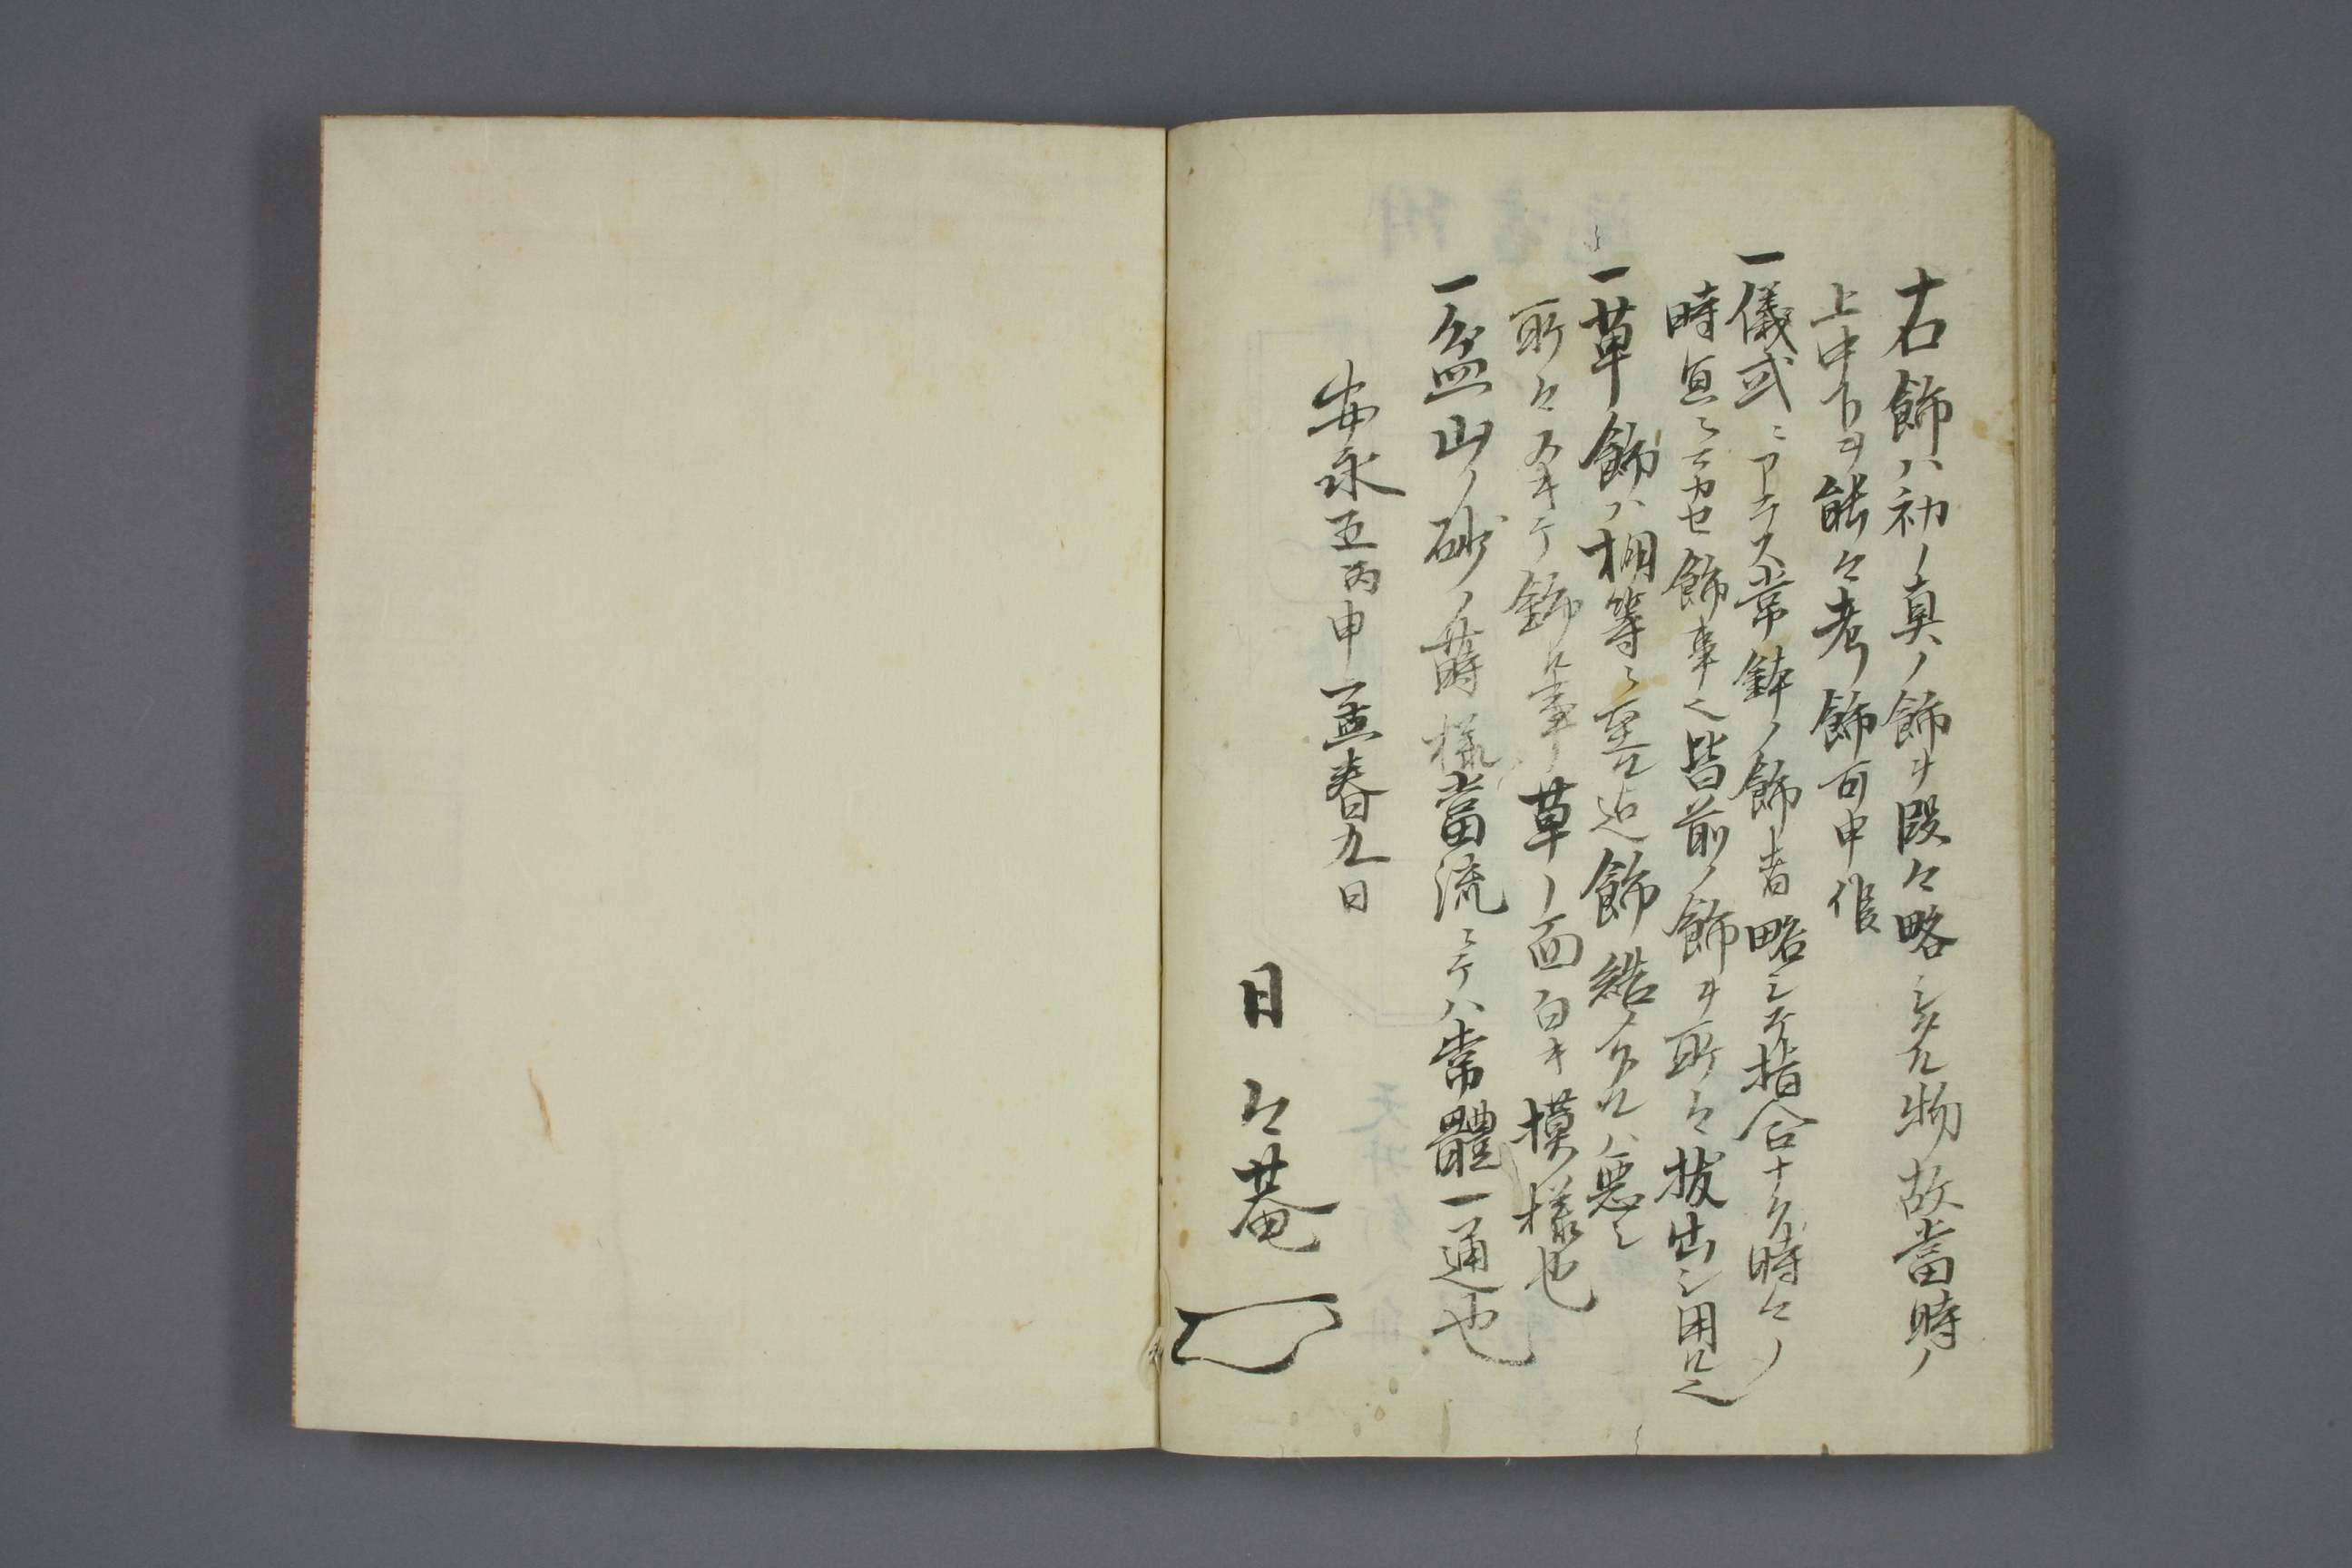 右飾ハ初ノ真ノ飾ヲ段々略シタル物故當時ノ
上中下ヲ能々考飾可申候
一儀式ニアラス常ノ飾者略シテ指合ナク時々ノ
時宜ニマカセ飾事也皆前ノ飾ヲ所々抜出シ用ル也
一草飾ハ棚等ニ至ル迄飾結タルハ悪シ
所々スキテ飾ル事草ノ面白キ模様也
一盆山ノ砂ノ蒔様當流ニテハ常體一通也
安永五丙申孟春九日
日々菴